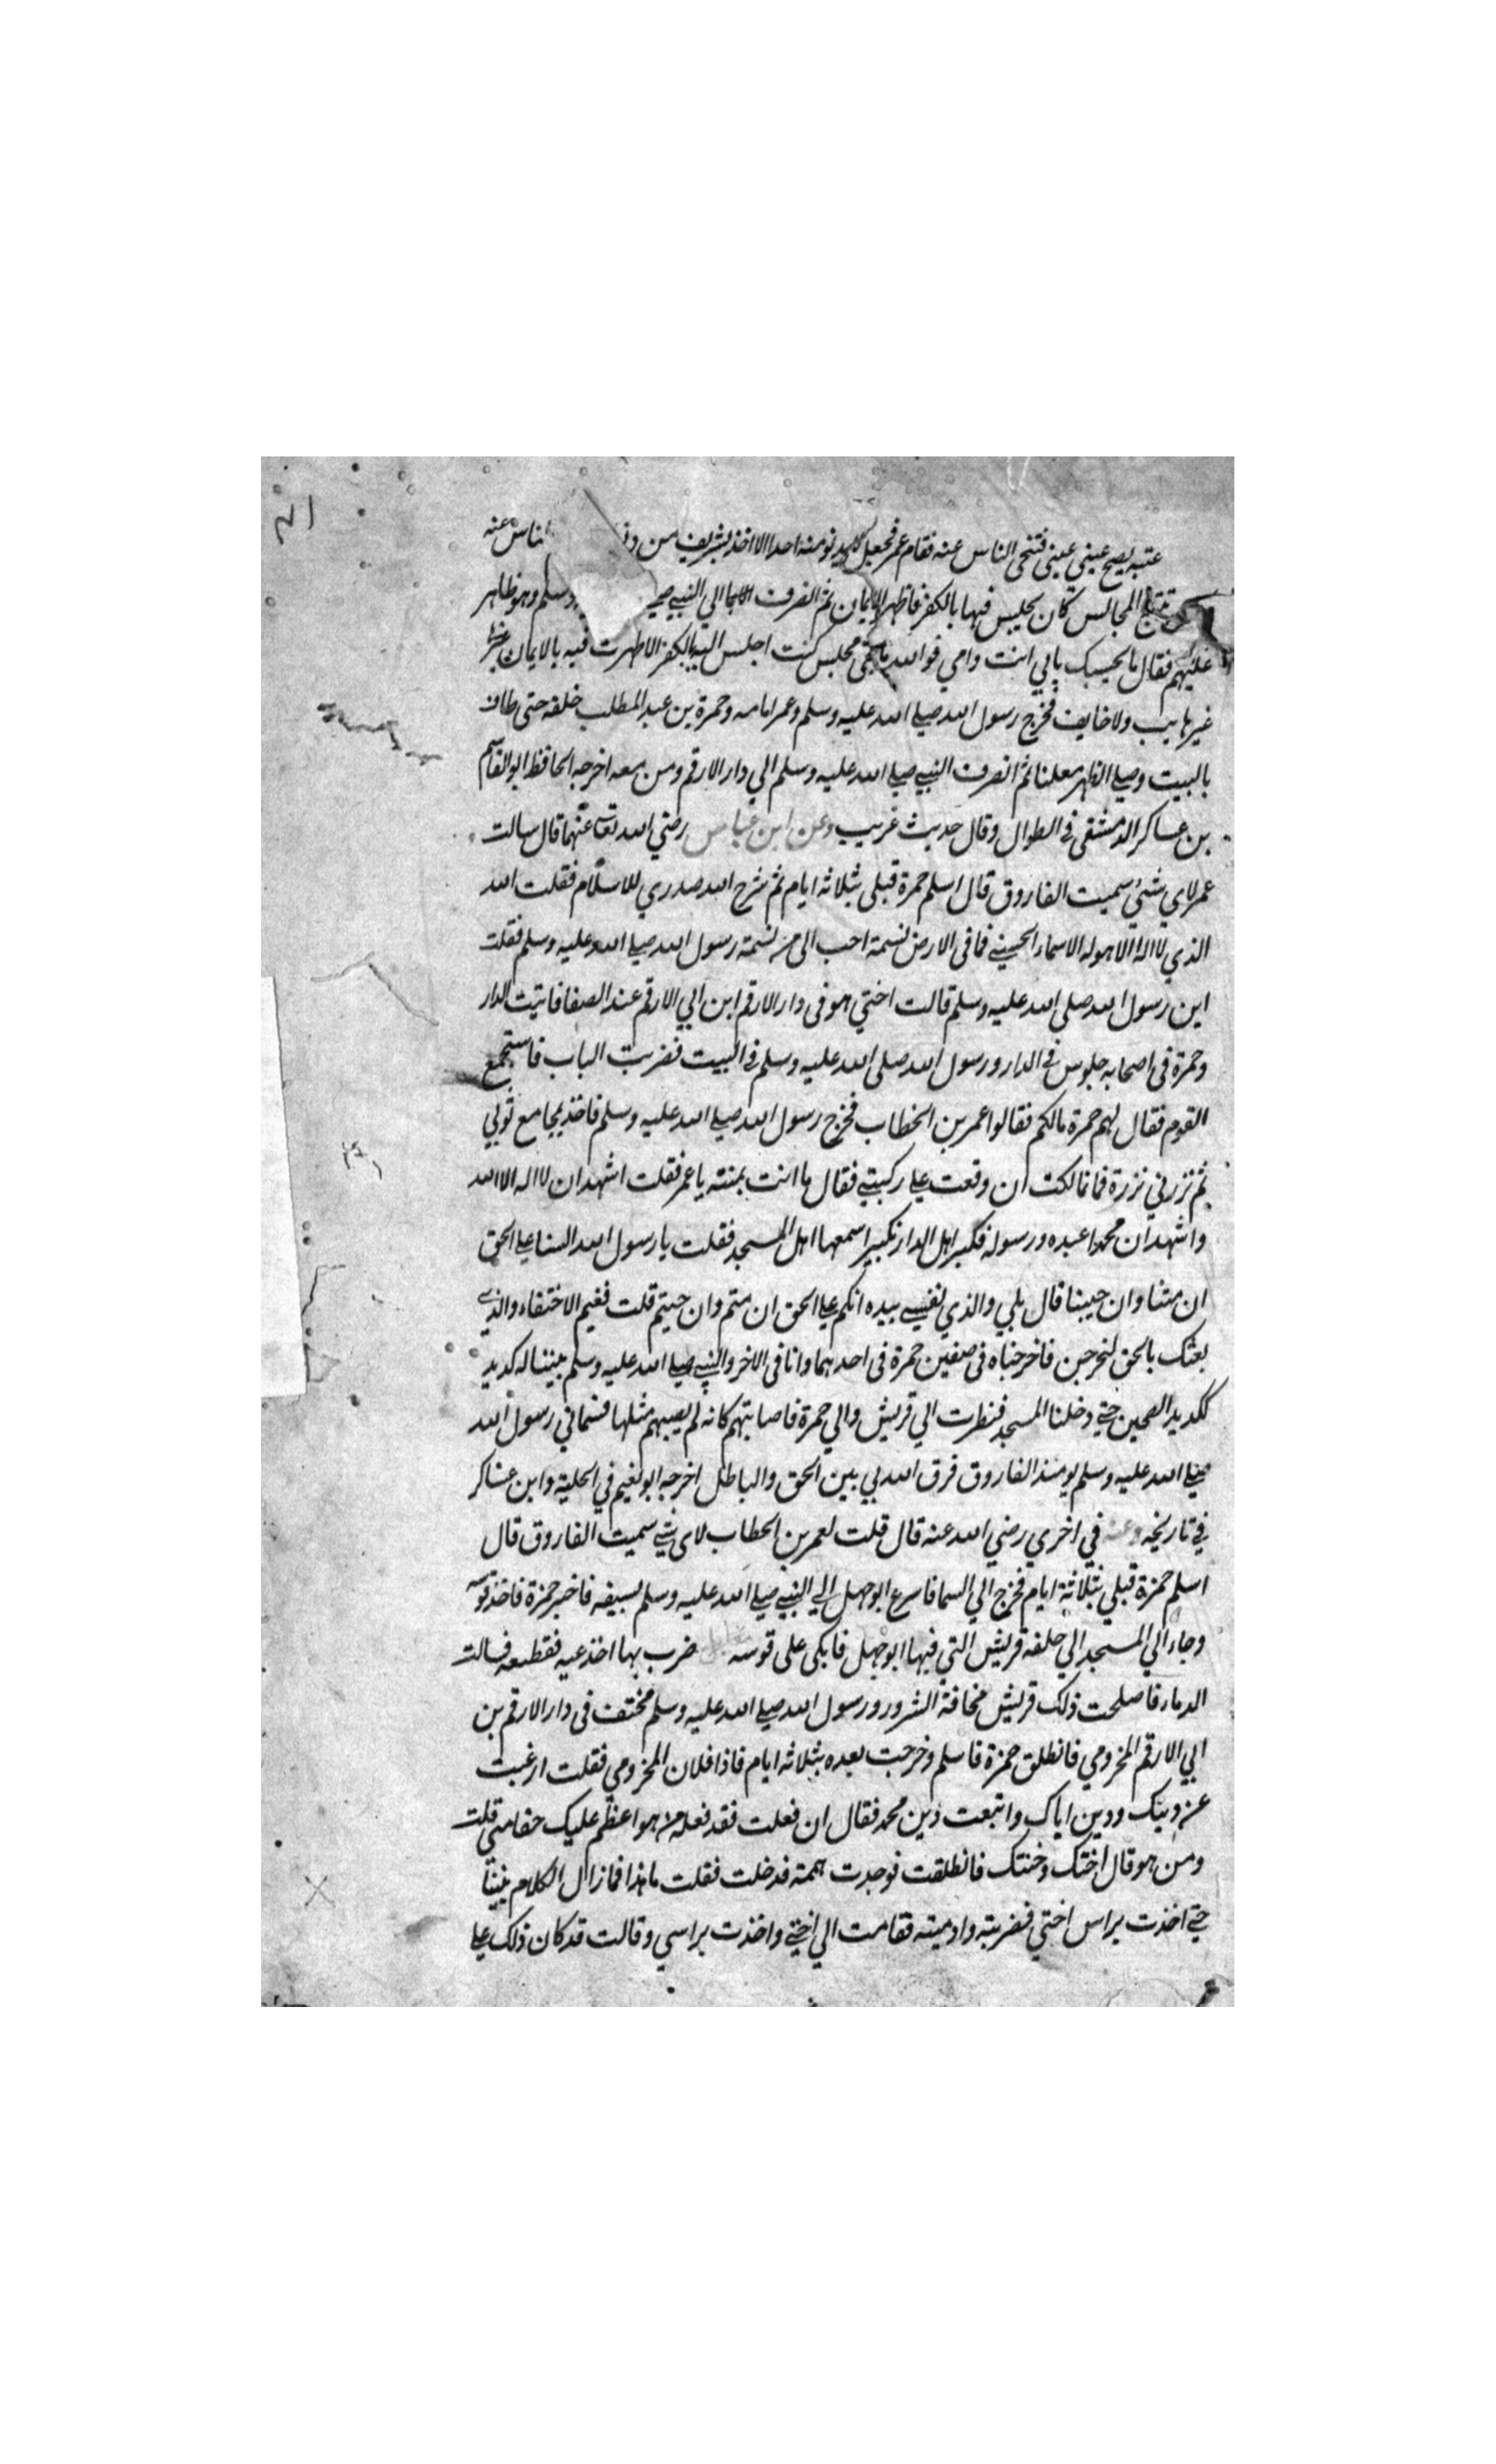 عتبه يصيح عيني عيني فتنحي الناس عنه فقام عمر فجعل لا يدنو منه احد الا اخذ بشريف من الناس عنه
المجالس كان يجلس فيها بالكفر فاظهر الايمان ثم انصرف الي النبي وسلم وهو ظاهر
عليهم فقال ما يحبسك بابي انت وامي فوالله ما بقي مجلس كنت اجلس فيه بالكفر الا ظهرت فيه بالايمان
غير هايب ولا خايف فخرج رسول الله صلي الله عليه وسلم وعمر امامه وحمزة بن عبد المطلب خلفه حتي طاف
بالبيت وصلي الظهر معلنا ثم انصرف النبي صلي الله عليه وسلم الي دار الارقم ومن معه اخرجه الحافظ ابو القاسم
بن عساكر الدمشقي في الطوال وقال حديث غريب وعن ابن عباس رضي الله تعا عنهما قال سالت
عمر لاي شئ سميت الفاروق قال اسلم حمزة قبلي بثلاثه ايام ثم شرح الله صدري للاسلام فقلت الله
الذي لا اله الا هو له الاسماء الحسني فما في الارض نسمة احب الي من نسمة رسول الله صلي الله عليه وسلم فقلت
اين رسول الله صلي الله عليه وسلم قالت اختي هو في دار الارقم ابن ابي الارقم عند الصفا فاتيت الدار
وحمزة في اصحابه جلوس في الدار ورسول الله صلي الله عليه وسلم في البيت فضربت الباب فاستجمع
القوم فقال لهم حمزة مالكم فقالوا عمر بن الخطاب فخرج رسول الله صلي الله عليه وسلم فاخذ بمجامع ثوبي
ثم نزرني نزرة فما تمالكت ان وقعت علي ركبتي فقال ما انت بمنته يا عمر فقلت اشهد ان لا اله الا الله
واشهد ان محمدا عبده ورسوله فكبر اهل الدار تكبيرا سمعها اهل المسجد فقلت يا رسول الله السنا علي الحق
ان متنا وان حيينا قال بلي والذي نفسي بيده انكم علي الحق ان متم وان حييتم قلت ففيم الاختفاء والذي
بعثك بالحق لنخرجن فاخرجناه في صفين حمزة في احدهما وانا في الاخر والنبي صلي الله عليه وسلم بيننا له كديد
ككديد الصحين حتي دخلنا المسجد فنظرت الي قريش والي حمزة فاصابتهم كانه لم يصبهم مثلها فسماني رسول الله
صلي الله عليه وسلم يومئذ الفاروق فرق الله بي بين الحق والباطل اخرجه ابو نعيم في الحلية وابن عساكر
في تاريخه وعنه في اخري رضي الله عنه قال قلت لعمر بن الخطاب لاي شي سميت الفاروق قال
اسلم حمزة قبلي بثلاثة ايام فخرج الي السما فاسرع ابو جهل الي النبي صلي الله عليه وسلم بسيفه فاخبر حمزة فاخذ قوسه
وجاء الي المسجد الي حلفة قريش التي فيها ابو جهل فابكي علي قوسه ضرب بها اخذعيه فقطعه فسالت
الدماء فاصلحت ذلك قريش مخافة الشر ورسول الله صلي الله عليه وسلم مختف في دار الارقم بن
ابي الارقم المخزومي فانطلق حمزة فاسلم وخرجت بعده بثلاثه ايام فاذا فلان المخزومي فقلت ارغبت
عن دينك ودين اباك واتبعت دين محمد فقال ان فعلت فقد فعله من هو اعظم عليك حقا مني قلت
ومن هو قال اختك وختنك فانطلقت فوجدت همهمة فدخلت فقلت ما هذا فما زال الكلام بيننا
حتي اخذت براس اختي فضربته وادميته فقامت الي اختي واخذت براسي وقالت قد كان ذلك علي